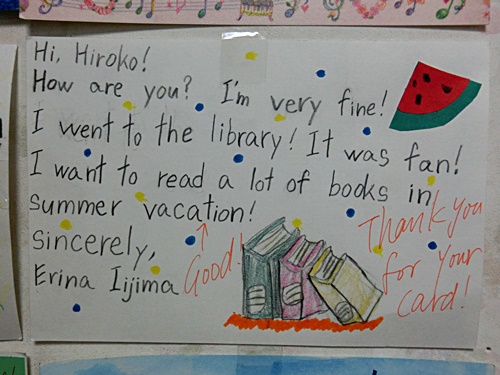 Hi, Hiroko!
How are you? I'm very fine!
I went to the library! It was fan!
I want to read a lot of books in
summer vacation!
Sincerely,
Erina Iijima
Good!
Thank you
for your
card!